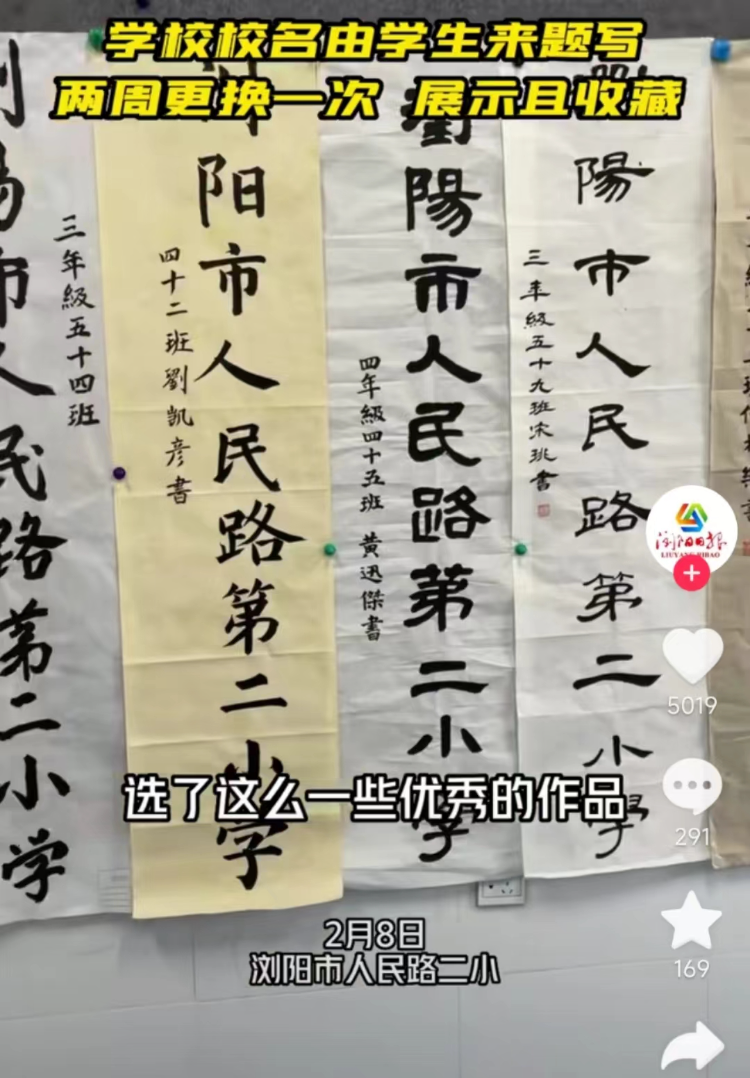 学校校名由学生来题写
两周更换一次 展示且收藏
市人民路第二小学
三年級五十四班
阳市人民路第二小学
四十二班劉凱彦書
瀏陽市人民路第二小學
四年級四十五班 黄迅傑書
陽市人民路第二小學
三年級五十九班宋珧書
浏阳日报
LIUYANG RIBAO
5019
选了这么一些优秀的作品
291
2月8日
浏阳市人民路二小
169